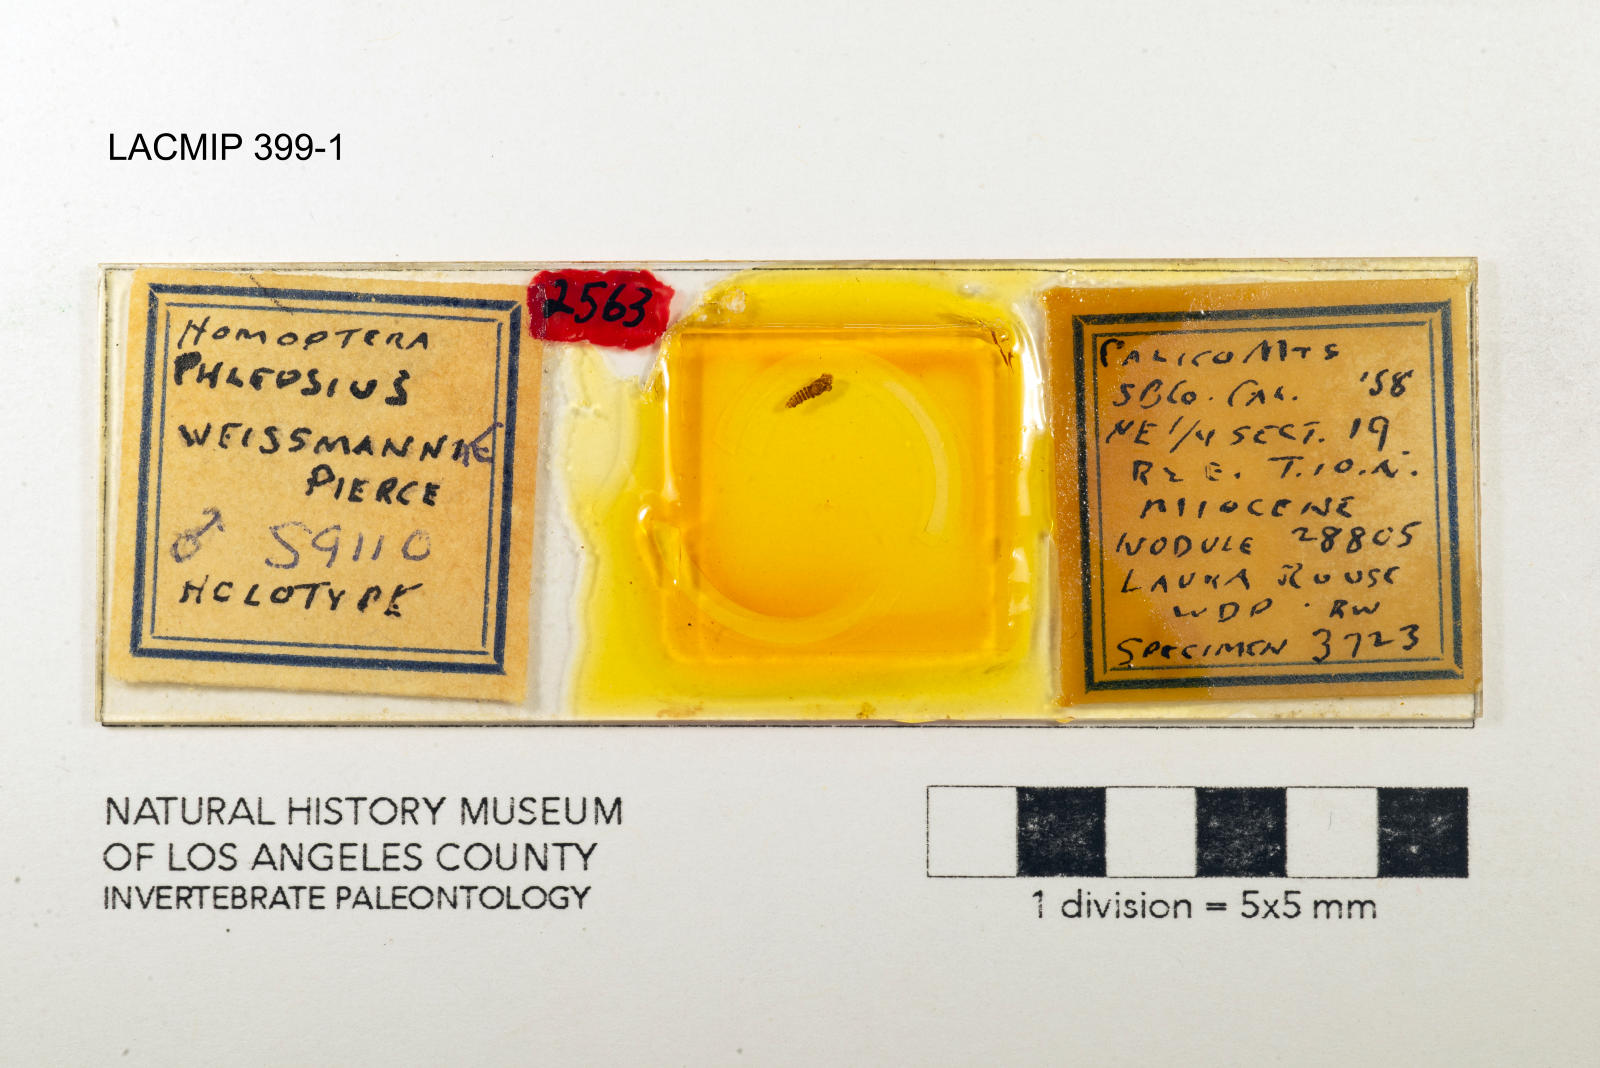 LACMIP 399-1
HOMOPTERA
PHLEOSIUS
WEISSMANNAE
PIERCE
♂ 59110
HOLOTYPE
2563
CALICO MTS
SBCO. CAL. '58
NE 1/4 SECT. 19
R2E. T.10.N.
MIOCENE
NODULE 28805
LAURA ROUSE
WDP · RW
SPECIMEN 3723
NATURAL HISTORY MUSEUM
OF LOS ANGELES COUNTY
INVERTEBRATE PALEONTOLOGY
1 division = 5x5 mm